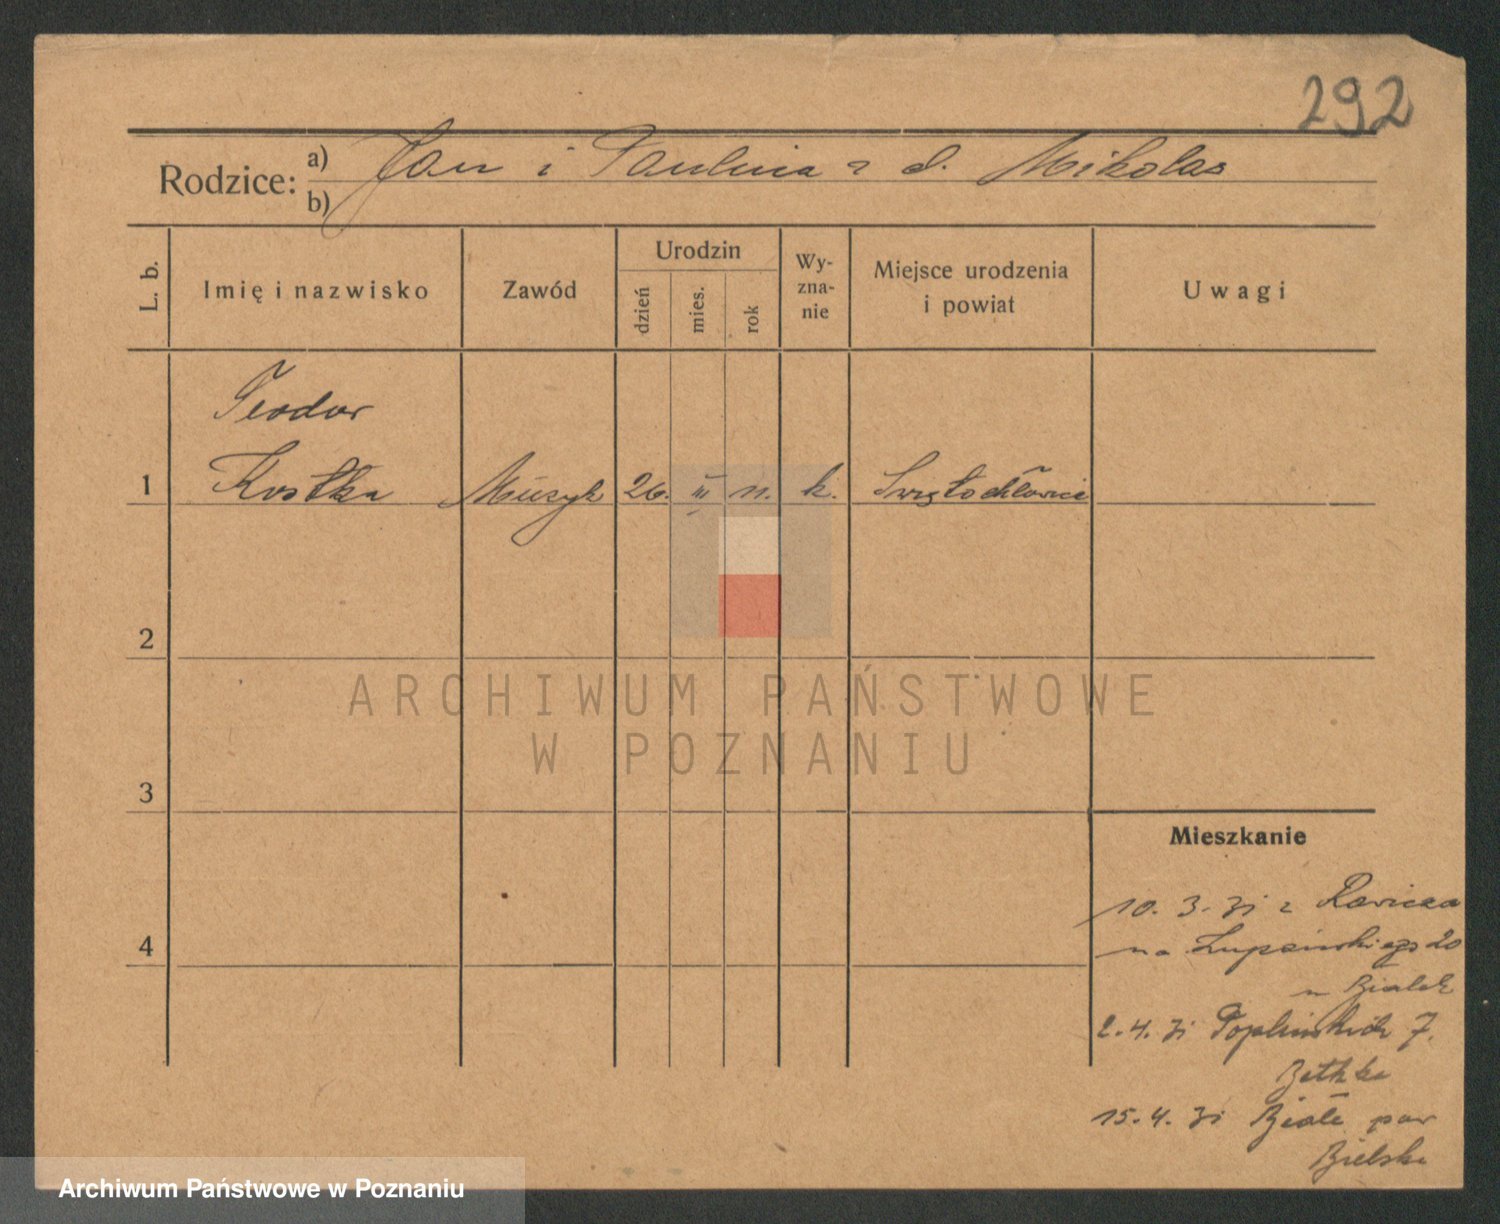 292
Rodzice: a) Jan i Paulina z d. Mikolas
b)
L. b. Imię i nazwisko Zawód Urodzin dzień mies. rok Wy-zna-nie Miejsce urodzenia i powiat Uwagi
Teodor
1 Kostka Muzyk 26. III 11. k. Świętochłowice
2
ARCHIWUM PAŃSTWOWE
W POZNANIU
3
Mieszkanie
10. 3. 31 z Rawicza
4 na Łupaińskiego 20
2. 4. 31 Poplińskich 7.
Bethke
15. 4. 31 pow
Bielski
Archiwum Państwowe w Poznaniu